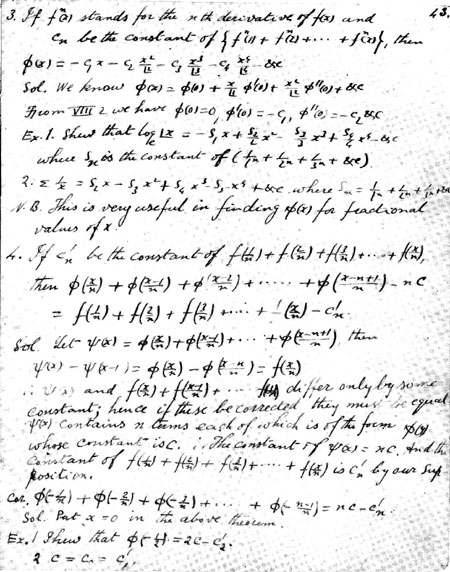 43.
3. If fⁿ(x) stands for the n th derivative of f(x) and
Cn be the constant of {fⁿ(1) + fⁿ(2) + ... + fⁿ(x)}, then
φ(x) = -C₁x - C₂ x²/|2 - C₃ x³/|3 - C₄ x⁴/|4 - &c
Sol. We know φ(x) = φ(0) + x/|1 φ'(0) + x²/|2 φ''(0) + &c
From VIII 2 we have φ(0)=0, φ'(0) = -C₁, φ''(0) = -C₂ &c
Ex. 1. Shew that logₑ|x = -S₁x + S₂/2 x² - S₃/3 x³ + S₄/4 x⁴ - &c
where Sn is the constant of (1/1ⁿ + 1/2ⁿ + 1/3ⁿ + &c).
2. Σ 1/x = S₂x - S₃x² + S₄x³ - S₅x⁴ + &c where Sn = 1/1ⁿ + 1/2ⁿ + 1/3ⁿ + &c
N.B. This is very useful in finding φ(x) for fractional
values of x.
4. If C'n be the constant of f(1/n) + f(2/n) + f(3/n) + ... + f(x/n),
then φ(x/n) + φ((x-1)/n) + φ((x-2)/n) + ...... + φ((x-n+1)/n) - nC
= f(1/n) + f(2/n) + f(3/n) + ... + f(x/n) - C'n.
Sol. Let ψ(x) = φ(x/n) + φ((x-1)/n) + ... + φ((x-n+1)/n), then
ψ(x) - ψ(x-1) = φ(x/n) - φ((x-n)/n) = f(x/n)
∴ ψ(x) and f(x/n) + f((x-1)/n) + ... differ only by some
constant; hence if these be corrected, they must be equal
ψ(x) contains n terms each of which is of the form φ(y)
whose constant is C. ∴ The constant of ψ(x) = nC. And the
constant of f(1/n) + f(2/n) + f(3/n) + ... + f(x/n) is C'n by our sup
position.
Cor. φ(-1/n) + φ(-2/n) + φ(-3/n) + ... + φ(-(n-1)/n) = nC - C'n.
Sol. Put x = 0 in the above theorem.
Ex. 1 Shew that φ(-1/2) = 2C - C'₂.